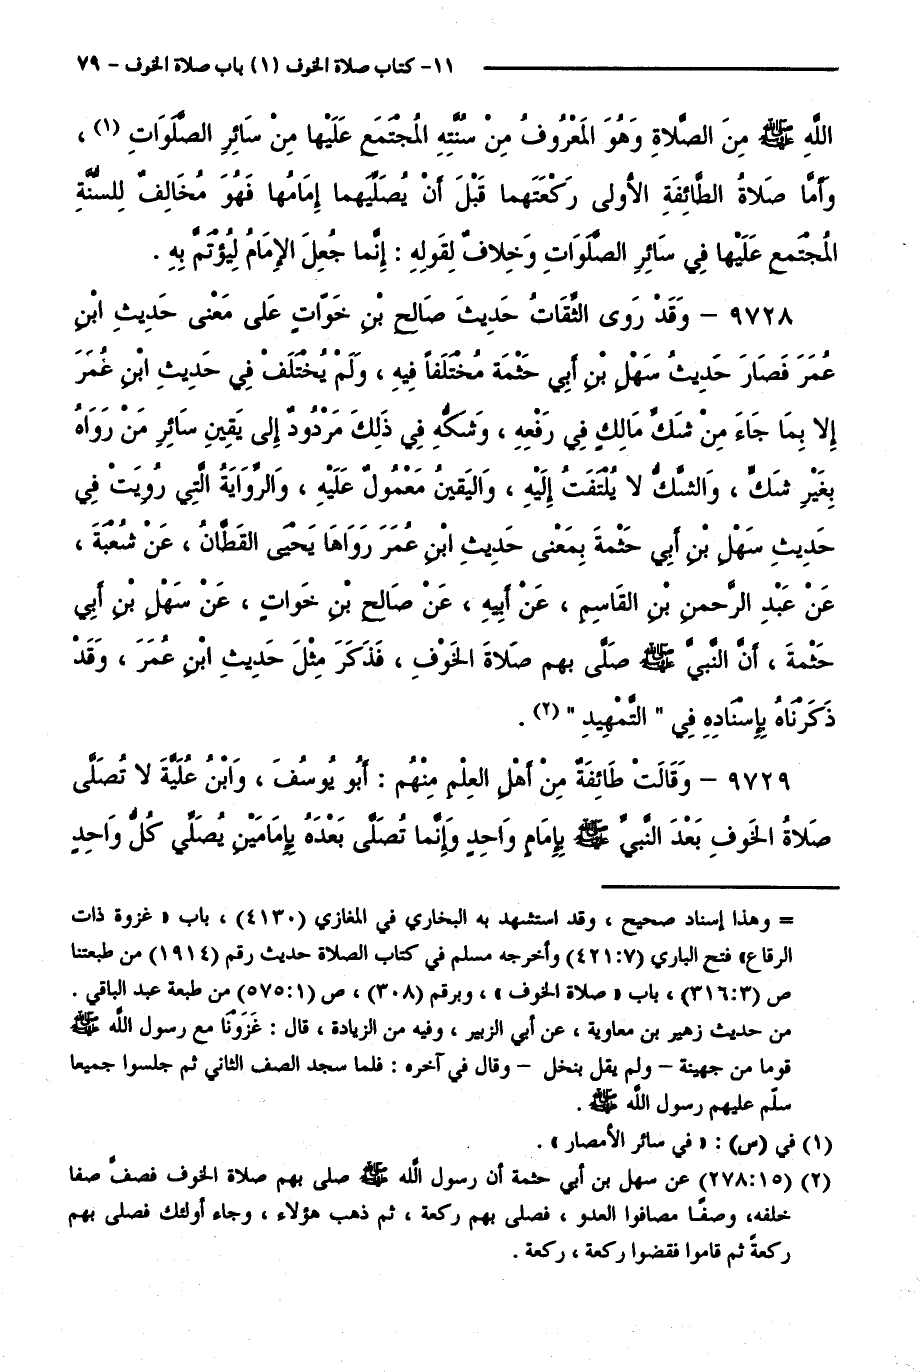 ١١- كتاب صلاة الخوف (١) باب صلاة الخوف - ٧٩
اللَّهِ ﷺ مِنَ الصَّلَاةِ وَهُوَ المَعْرُوفُ مِنْ سُنَّتِهِ المُجْتَمَعِ عَلَيْها مِنْ سَائِرِ الصَّلَوَاتِ (١) ،
وَأَمَّا صَلَاةُ الطَّائِفَةِ الأُولى رَكْعَتَهما قَبْلَ أَنْ يُصَلِّيَهما إِمَامُها فَهُوَ مُخَالِفٌ لِلسُّنَّةِ
المُجْتَمعِ عَلَيْها فِي سَائِرِ الصَّلَوَاتِ وَخِلافٌ لِقَولِهِ : إِنَّما جُعِلَ الإِمَامُ لِيُؤتَمَّ بِهِ .
٩٧٢٨ - وَقَدْ رَوَى الثِّقَاتُ حَدِيثَ صَالِحِ بْنِ خَوَّاتٍ عَلى مَعْنَى حَدِيثِ ابْنِ
عُمَرَ فَصَارَ حَدِيثُ سَهْلِ بْنِ أَبِي حَثْمَةَ مُخْتَلَفاً فِيهِ ، وَلَمْ يُخْتَلَفْ فِي حَدِيثِ ابْنِ عُمَرَ
إِلا بِمَا جَاءَ مِنْ شَكِّ مَالِكٍ فِي رَفْعِهِ ، وَشَكُّهِ فِي ذَلِكَ مَرْدُودٌ إِلى يَقِينِ سَائِرِ مَنْ رَوَاهُ
بِغَيْرِ شَكٍّ ، وَالشَّكُّ لا يُلْتَفَتُ إِلَيْهِ ، وَاليَقينُ مَعْمُولٌ عَلَيْهِ ، وَالرِّوَايَةُ الَّتِي رُوِيَتْ فِي
حَدِيثِ سَهْلِ بْنِ أَبِي حَثْمةَ بِمَعْنى حَدِيثِ ابْنِ عُمَرَ رَوَاهَا يَحْيَى القَطَّانُ ، عَنْ شُعْبَةَ ،
عَنْ عَبْدِ الرَّحمنِ بْنِ القَاسِمِ ، عَنْ أَبِيهِ ، عَنْ صَالِحِ بْنِ خَواتٍ ، عَنْ سَهْلِ بْنِ أَبِي
حَثْمةَ ، أَنَّ النَّبيَّ ﷺ صَلَّى بهم صلَاةَ الخَوْفِ ، فَذَكَرَ مِثْلَ حَدِيثِ ابْنِ عمَرَ ، وَقَدْ
ذَكَرْنَاهُ بِإِسْنَادِهِ فِي " التَّمْهِيدِ " (٢) .
٩٧٢٩ - وَقَالَتْ طَائِفَةٌ مِنْ أَهْلِ العِلْمِ مِنْهُم : أَبُو يُوسُفَ ، وَابْنُ عُلَيَّةَ لا تُصَلَّى
صَلَاةُ الخَوفِ بَعْدَ النَّبيِّ ﷺ بِإِمَامٍ وَاحِدٍ وَإِنَّما تُصَلَّى بَعْدَهُ بِإِمَامَيْنِ يُصَلِّي كُلُّ وَاحِدٍ
= وهذا إسناد صحيح ، وقد استشهد به البخاري في المغازي (٤١٣٠) ، باب « غزوة ذات
الرقاع» فتح الباري (٤٢١:٧) وأخرجه مسلم في كتاب الصلاة حديث رقم (١٩١٤) من طبعتنا
ص (٣١٦:٣) ، باب « صلاة الخوف » ، وبرقم (٣٠٨) ، ص (٥٧٥:١) من طبعة عبد الباقي .
من حديث زهير بن معاوية ، عن أبي الزبير ، وفيه من الزيادة ، قال : غَزَوْنَا مع رسول اللَّه ﷺ
قوما من جهينة - ولم يقل بنخل - وقال في آخره : فلما سجد الصف الثاني ثم جلسوا جميعا
سلَّم عليهم رسول اللَّه ﷺ .
(١) في (س) : « في سائر الأمصار » .
(٢) (٢٧٨:١٥) عن سهل بن أبي حثمة أن رسول اللَّه ﷺ صلى بهم صلاة الخوف فصفَّ صفا
خلفه، وصفًّا مصافوا العدو ، فصلى بهم ركعة ، ثم ذهب هؤلاء ، وجاء أولئك فصلى بهم
ركعةً ثم قاموا فقضوا ركعة ، ركعة .